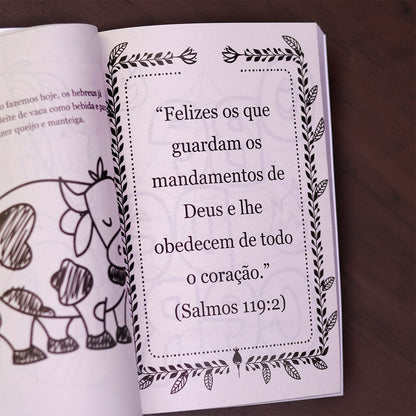 fazemos hoje, os hebreus já
leite de vaca como bebida e
zer queijo e manteiga.
“Felizes os que
guardam os
mandamentos de
Deus e lhe
obedecem de todo
o coração.”
(Salmos 119:2)